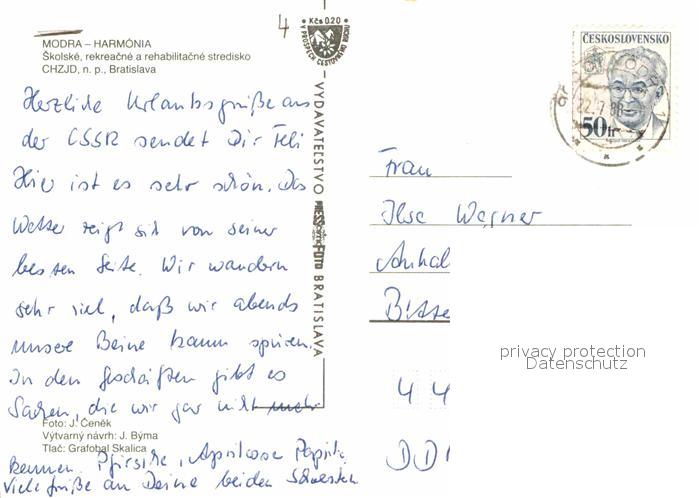 4
Kčs 0.20
V PROSPECH CESTOVNÉHO RUCHU
ČESKOSLOVENSKO
50 h
22.7.88
MODRA – HARMÓNIA
Školské, rekreačné a rehabilitačné stredisko
CHZJD, n. p., Bratislava
VYDAVATEĽSTVO PRESSFOTO BRATISLAVA
Herzliche Urlaubsgrüße aus
der CSSR sendet Dir Feli
Hier ist es sehr schön. Das
Wetter zeigt sich von seiner
besten Seite. Wir wandern
sehr viel, daß wir abends
unsere Beine kaum spüren.
In den Geschäften gibt es
Sachen, die wir gar nicht mehr
kennen. Pfirsiche, Aprikosen Paprika
Viele Grüße an Deine beiden Schwestern
Foto: J. Čeněk
Výtvarný návrh: J. Býma
Tlač: Grafobal Skalica
Frau
Ilse Wagner
Anhal
Bitte
4 4
DD
privacy protection
Datenschutz